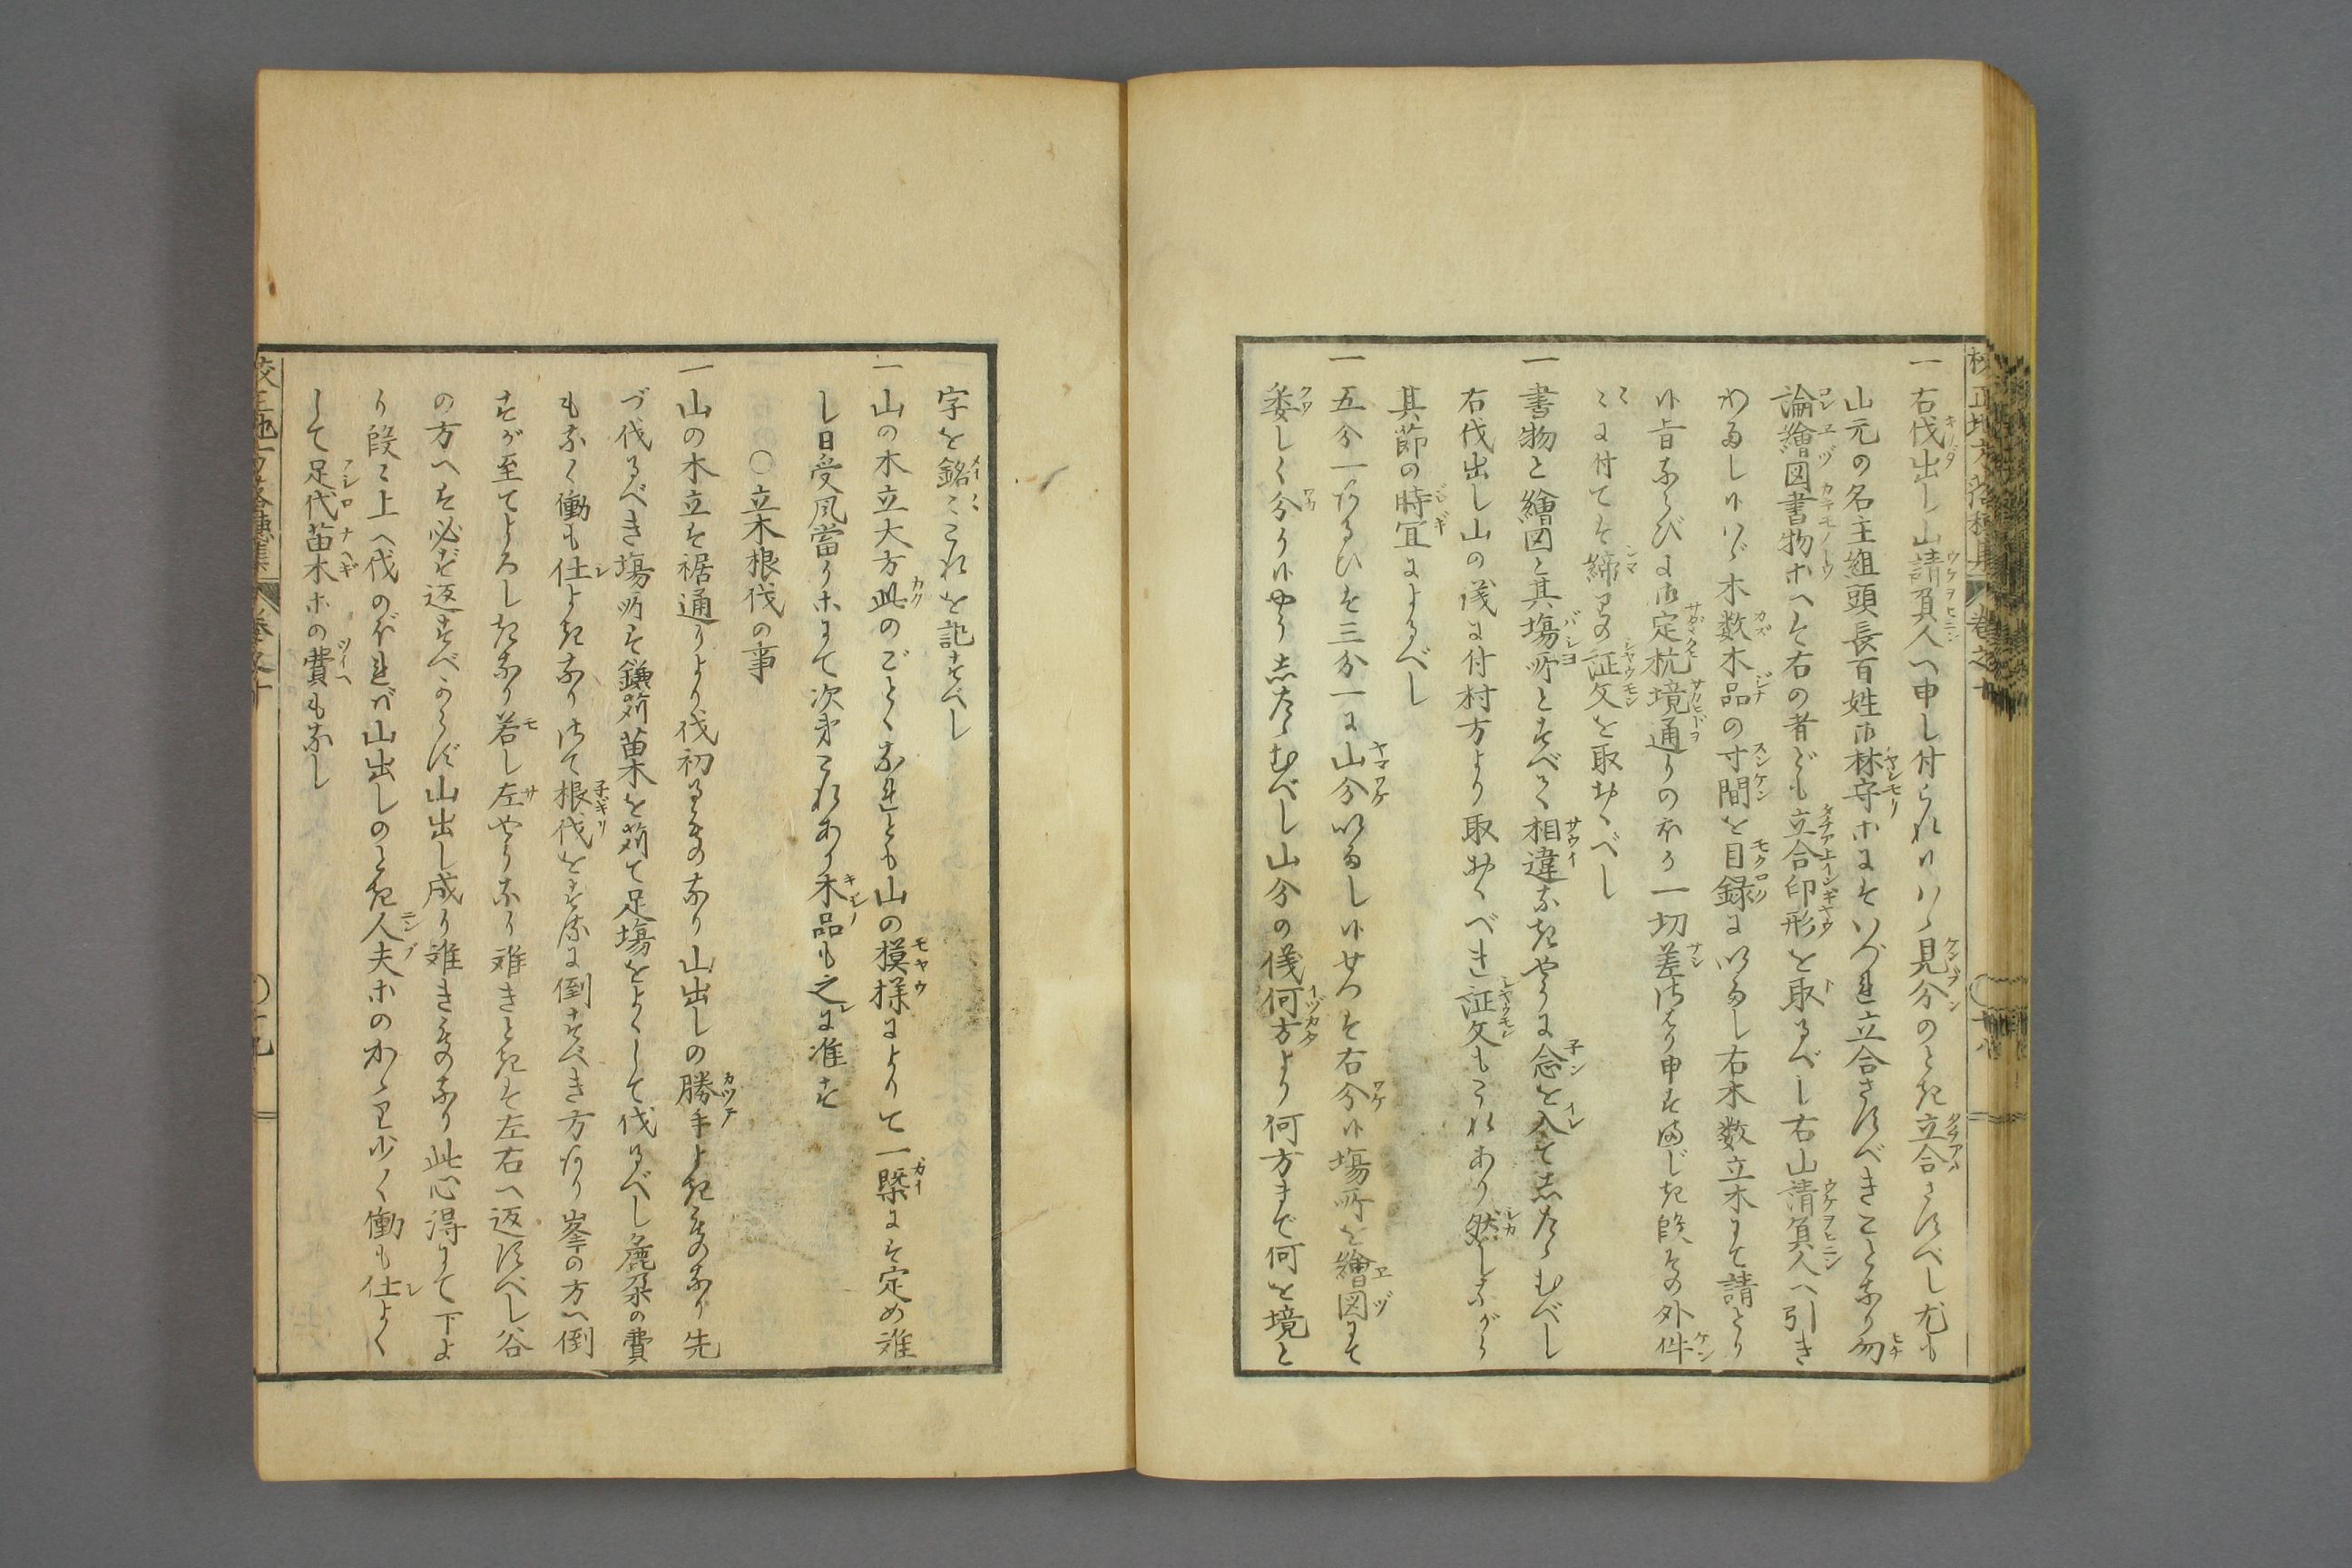 一右伐出し山請負人へ申し付られ候ハヽ見分のとき立合さすべし尤も
山元の名主組頭長百姓御林守等まていづれ立合さすべきことなり勿
論繪図書物等へも右の者ども立合印形を取るべし右山請負人へ引き
わたし候ハゞ木数木品の寸間を目録にいたし右木数立木にて請とり
候旨ならびに御定杭境通りのほか一切差はり申すまじき段その外件
〻に付ても締りの証文を取おくべし
一書物と繪図と其場所とすべて相違なきやうに念を入てしたゝむべし
右伐出し山の議に付村方より取おくべき証文もこれあり然しながら
其節の時宜によるべし
一五分一あるひは三分一に山分いたし候せつは右分候場所を繪図にて
委しく分り候やうしたゝむべし山分の儀何方より何方まで何を境と
字を銘〻これを記すべし
一山の木立大方此のごとくなれとも山の模様によりて一槩には定め難
し日受風當り等にて次第これあり木品も之に准ず
〇立木根伐の事
一山の木立は裾通りより伐初るものなり山出しの勝手よきものなり先
づ伐るべき場所は鎌苅苗木を苅て足場をよくして伐るべし麁朶の費
もなく働も仕よきなり扨て根伐をするに倒すべき方あり峯の方へ倒
すが至てよろしきなり若し左やうなり難きときは左右へ返すべし谷
の方へは必ず返すべからず山出し成り難きものなり此心得にて下よ
り段〻上へ伐のぼれバ山出しのとき人夫等のかゝり少く働も仕よく
して足代苗木等の費もなし